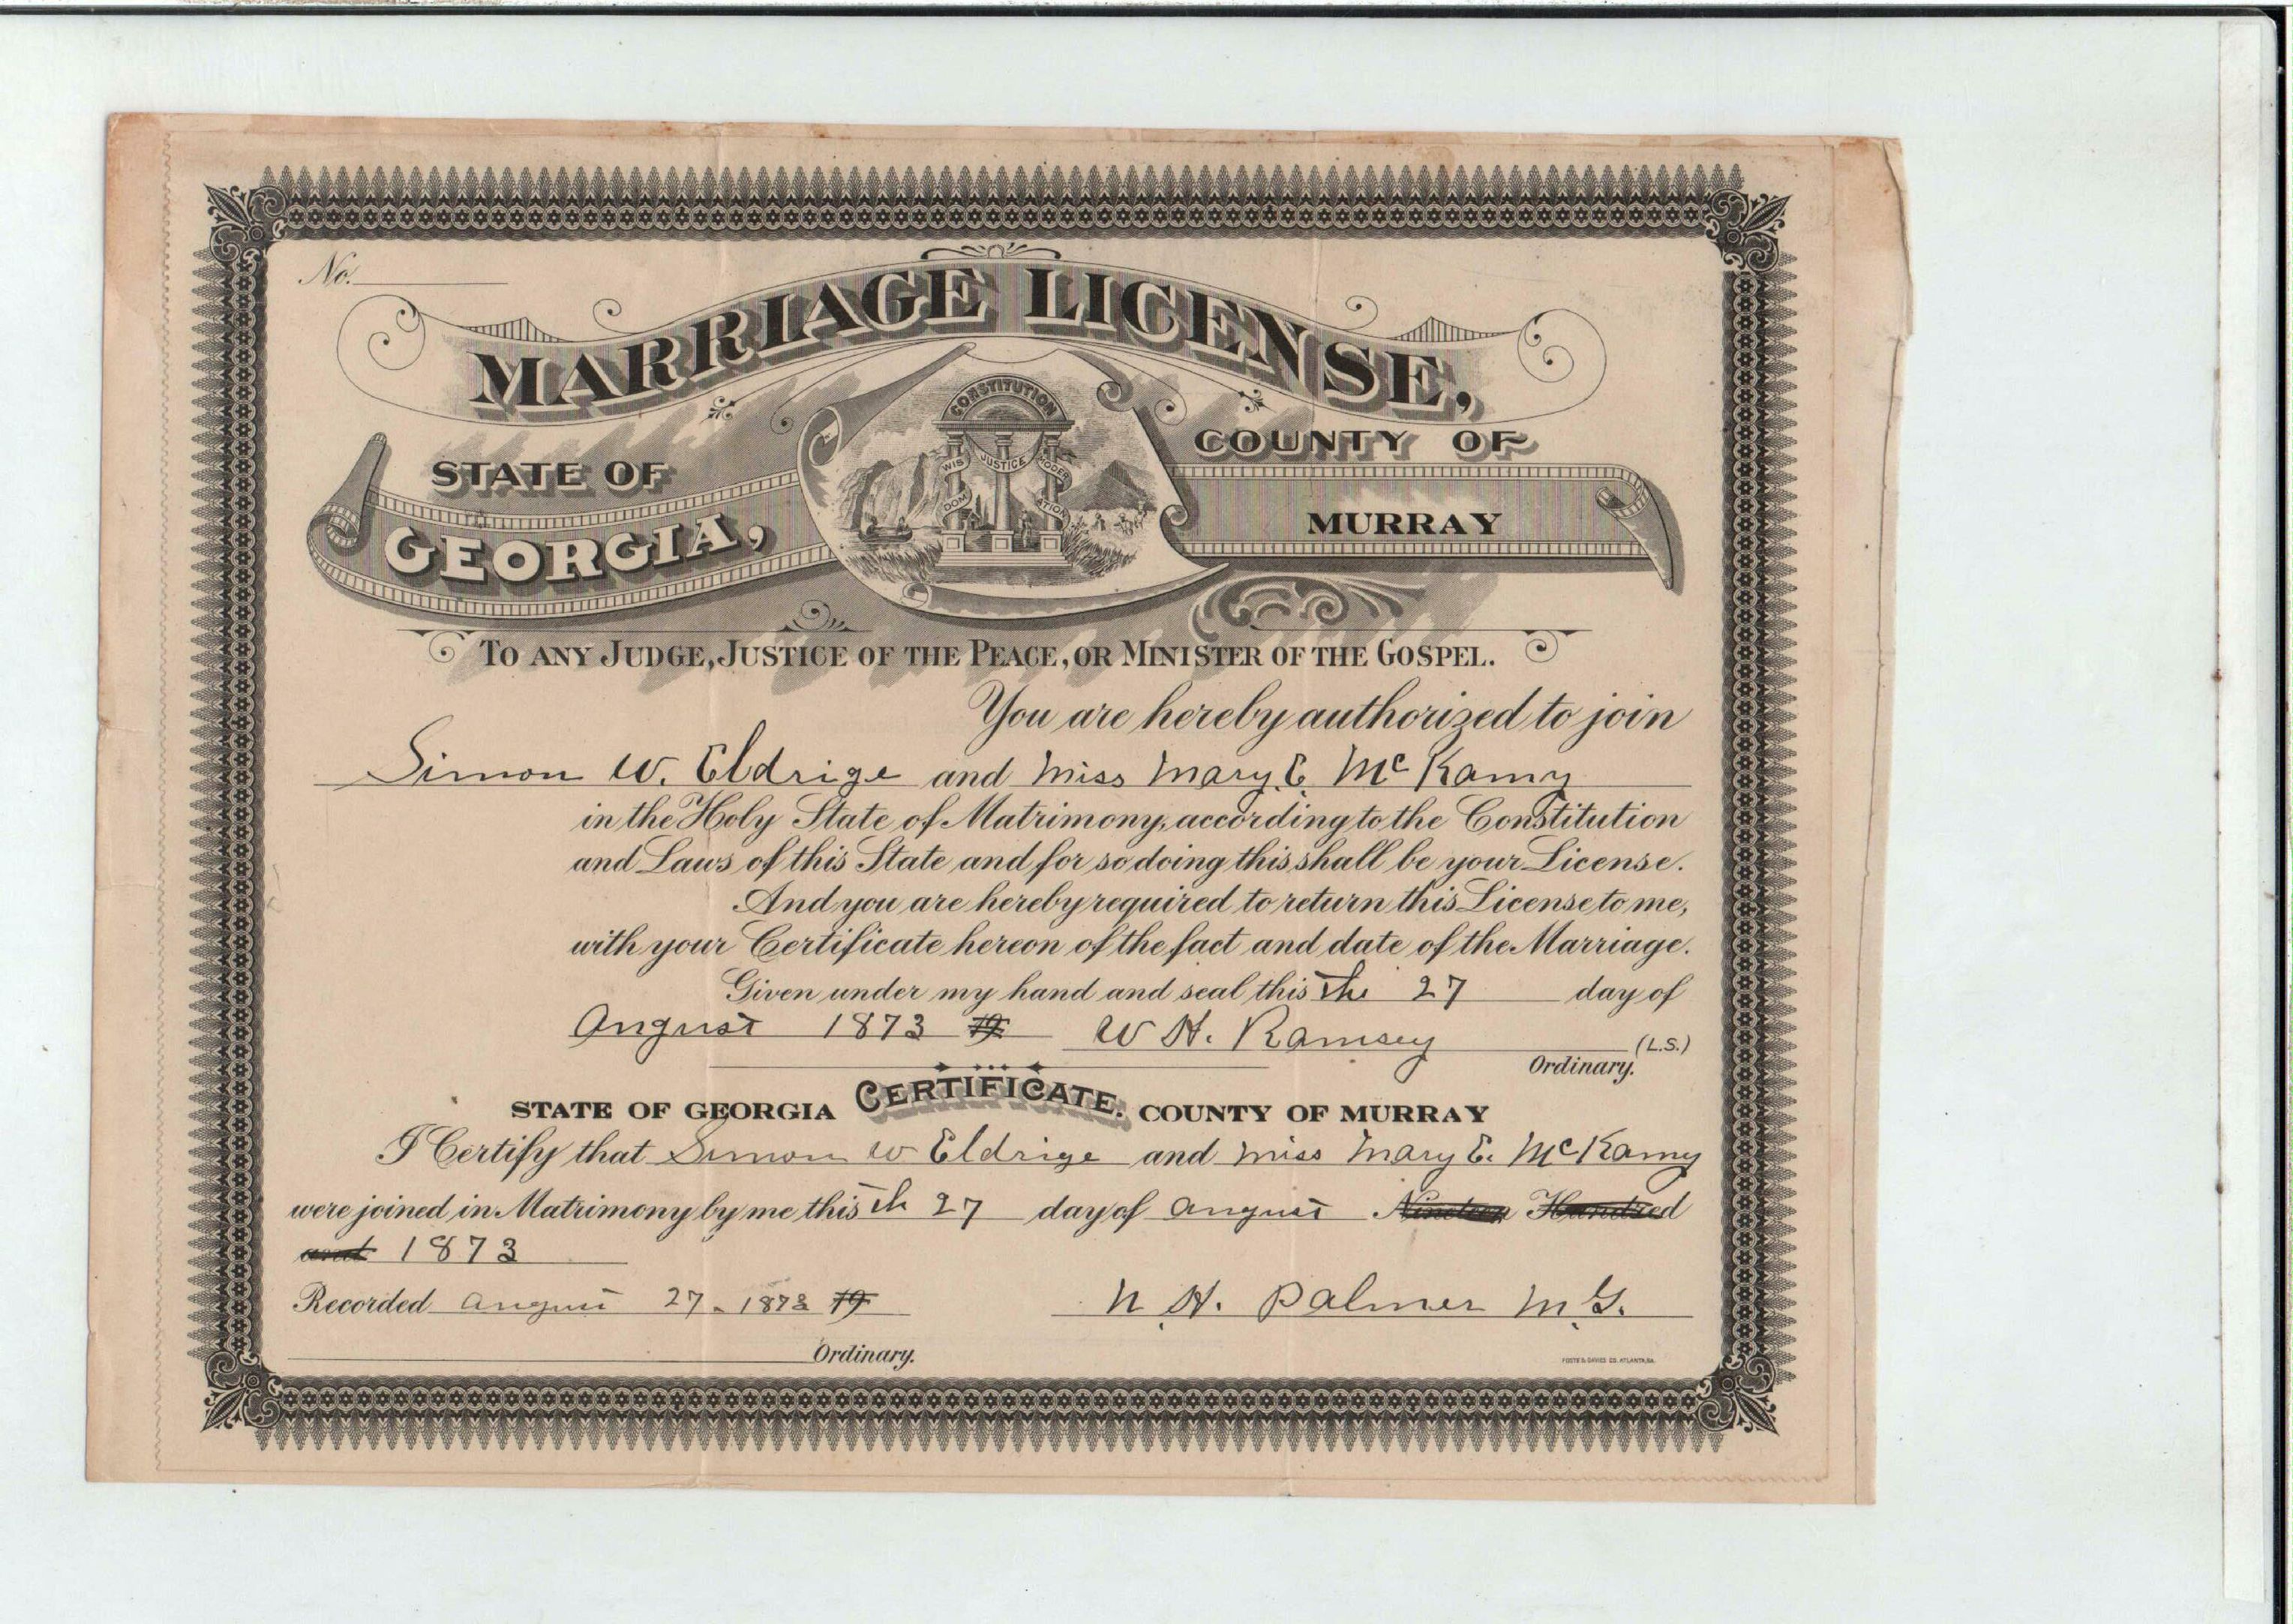 No.
MARRIAGE LICENSE,
CONSTITUTION
STATE OF
COUNTY OF
WIS DOM JUSTICE MODER ATION
GEORGIA,
MURRAY
TO ANY JUDGE, JUSTICE OF THE PEACE, OR MINISTER OF THE GOSPEL.
You are hereby authorized to join
Simon W. Eldrige and Miss Mary E. McKamy
in the Holy State of Matrimony, according to the Constitution
and Laws of this State and for so doing this shall be your License.
And you are hereby required to return this License to me,
with your Certificate hereon of the fact and date of the Marriage.
Given under my hand and seal this the 27 day of
August 1873 19 W H. Ramsey (L.S.)
Ordinary.
CERTIFICATE.
STATE OF GEORGIA COUNTY OF MURRAY
I Certify that Simon W Eldrige and Miss Mary E. McKamy
were joined in Matrimony by me this th 27 day of August Nineteen Hundred
and 1873
Recorded August 27 - 1873 19 N. H. Palmer M.G.
Ordinary.
FOOTE & DAVIES CO. ATLANTA, GA.